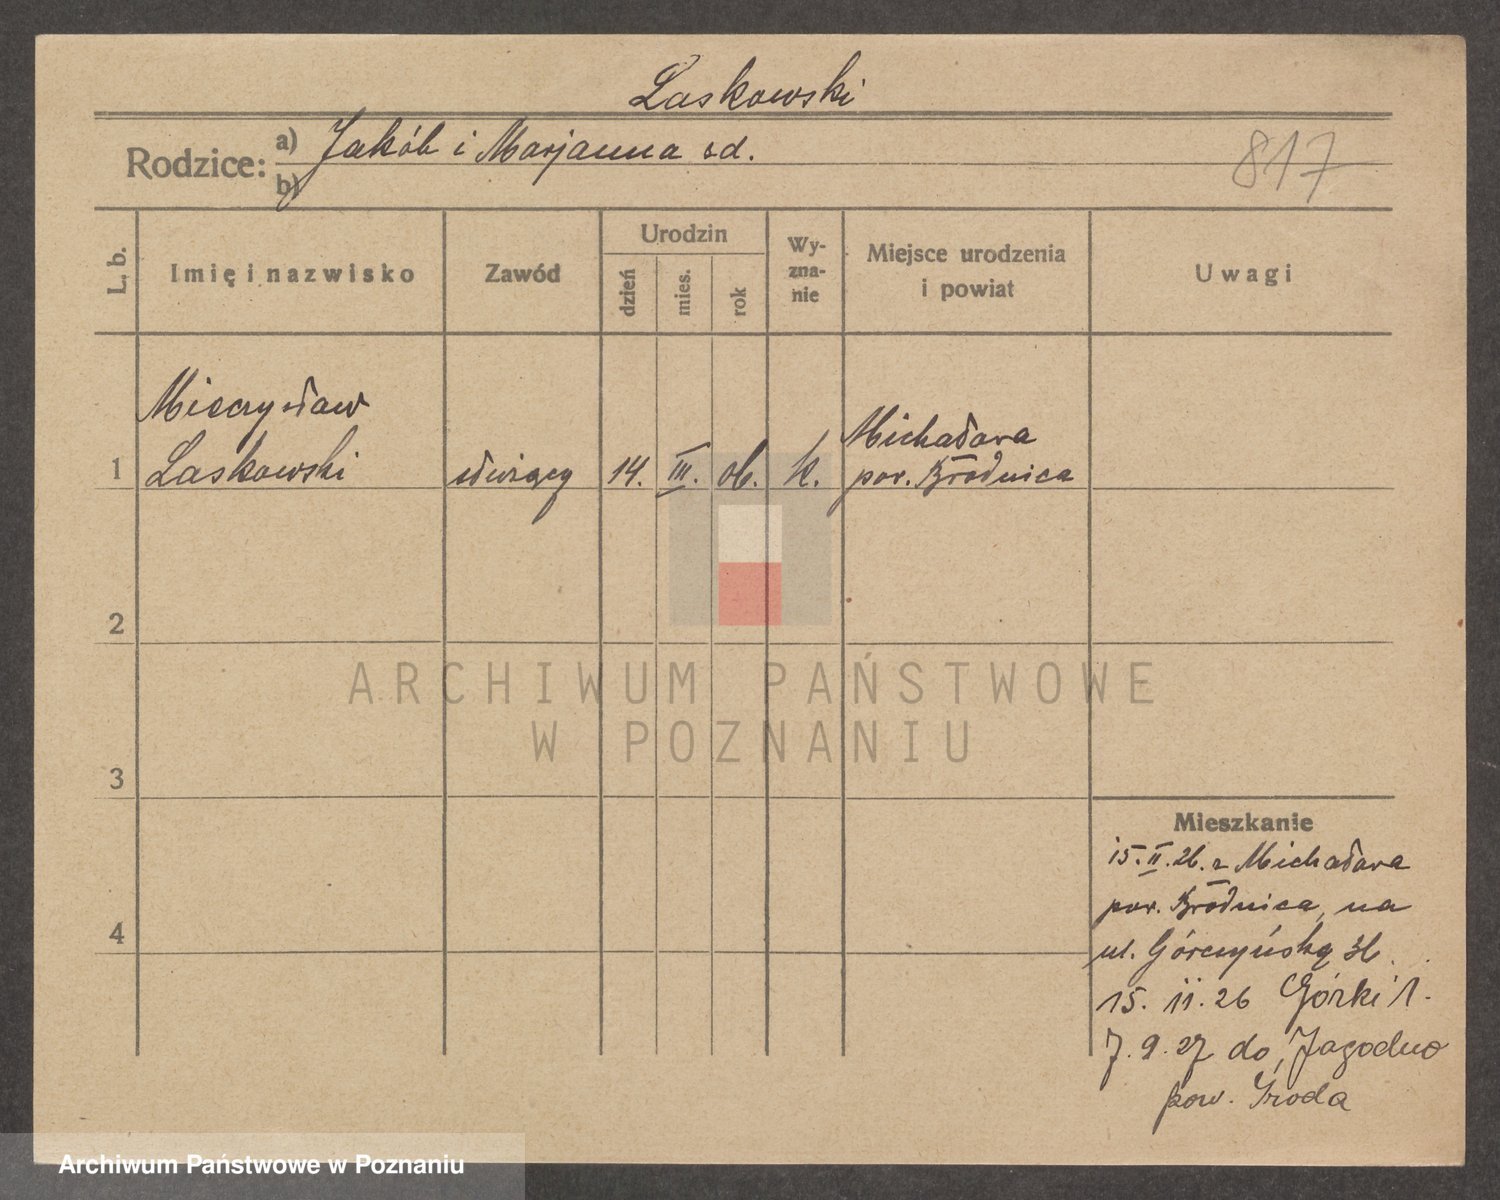 Laskowski
Rodzice: a) Jakób i Marjanna sd.
b)
817
L. b.
Imię i nazwisko
Zawód
Urodzin
dzień
mies.
rok
Wy-
zna-
nie
Miejsce urodzenia
i powiat
Uwagi
Mieczysław
1 Laskowski
14. III. 06. k.
Michałowa
pow. Brodnica
2
3
4
ARCHIWUM PAŃSTWOWE
W POZNANIU
Mieszkanie
15. II. 26. z Michałowa
pow. Brodnica, na
ul. Górczyńską
15. II. 26 Górki 1.
7. 9. 27 do Jagodno
pow. Środa
Archiwum Państwowe w Poznaniu